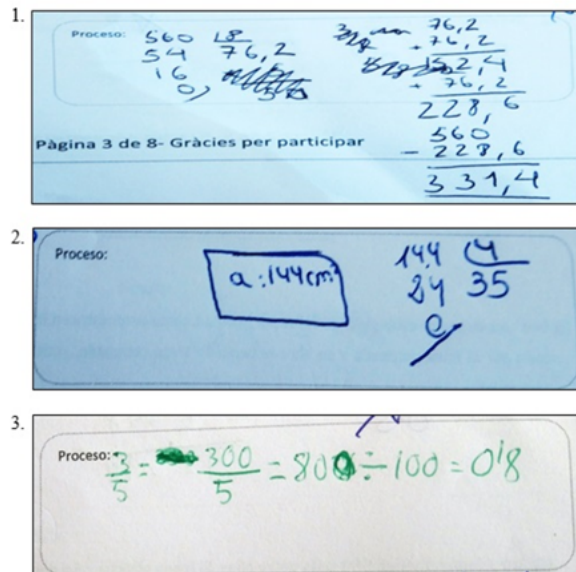 1.
Proceso: 560 8
54 76,2
16
0
76,2
+ 76,2
152,4
+ 76,2
228,6
560
- 228,6
331,4
Pàgina 3 de 8- Gràcies per participar
2.
Proceso:
a:144cm²
144 4
24 35
0
3.
Proceso: 3/5 = 300/5 = 800 ÷ 100 = 0'8